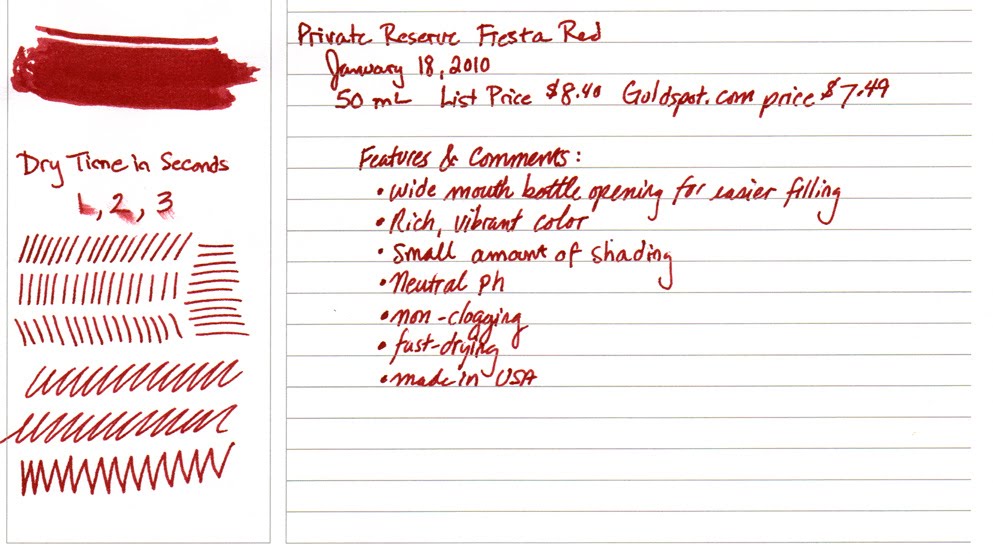 Private Reserve Fiesta Red
January 18, 2010
50 mL List Price $8.40 Goldspot.com price $7.49
Dry Time in Seconds
1, 2, 3
Features & Comments:
• wide mouth bottle opening for easier filling
• Rich, vibrant color
• Small amount of shading
• Neutral ph
• non-clogging
• fast-drying
• made in USA